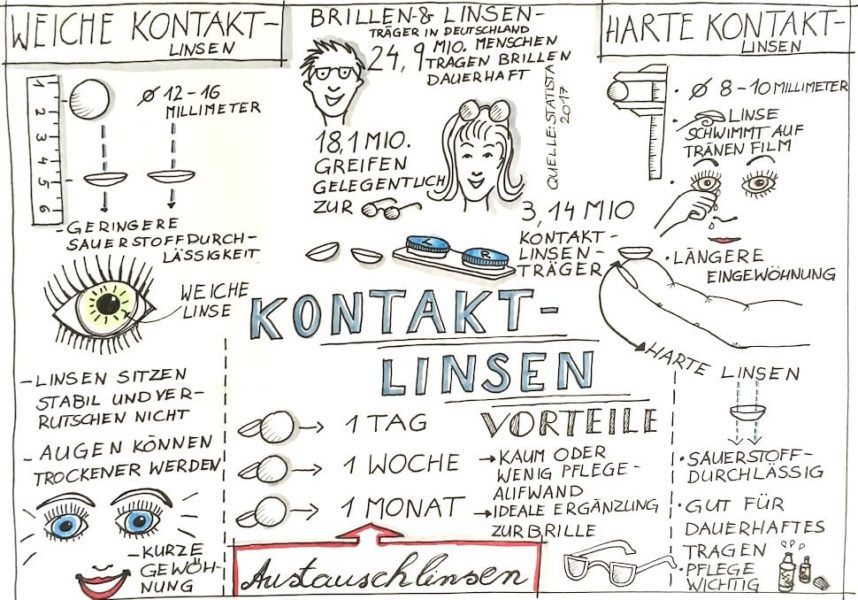 WEICHE KONTAKT-
LINSEN
1
2
3
4
5
6
Ø 12-16
MILLIMETER
-GERINGERE
SAUERSTOFFDURCH-
LÄSSIGKEIT
WEICHE
LINSE
-LINSEN SITZEN
STABIL UND VER-
RUTSCHEN NICHT
-AUGEN KÖNNEN
TROCKENER WERDEN
-KURZE
GEWÖH-
NUNG
BRILLEN-& LINSEN-
TRÄGER IN DEUTSCHLAND
24,9 MIO. MENSCHEN
TRAGEN BRILLEN
DAUERHAFT
QUELLE: STATISTA
2017
18,1 MIO.
GREIFEN
GELEGENTLICH
ZUR
3,14 MIO
KONTAKT-
LINSEN-
TRÄGER
L
R
KONTAKT-
LINSEN
1 TAG
1 WOCHE
1 MONAT
Austauschlinsen
VORTEILE
→KAUM ODER
WENIG PFLEGE-
AUFWAND
→IDEALE ERGÄNZUNG
ZUR BRILLE
HARTE KONTAKT-
LINSEN
• Ø 8-10 MILLIMETER
• LINSE
SCHWIMMT AUF
TRÄNEN FILM
• LÄNGERE
EINGEWÖHNUNG
HARTE LINSEN
• SAUERSTOFF-
DURCHLÄSSIG
• GUT FÜR
DAUERHAFTES
TRAGEN
• PFLEGE
WICHTIG